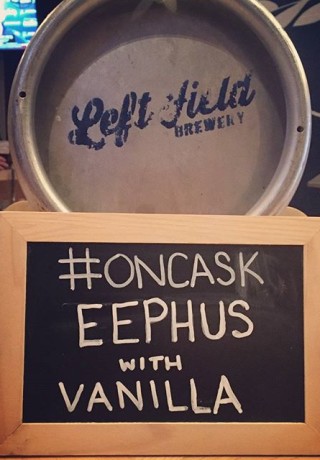 Left Field
BREWERY
#ONCASK
EEPHUS
WITH
VANILLA